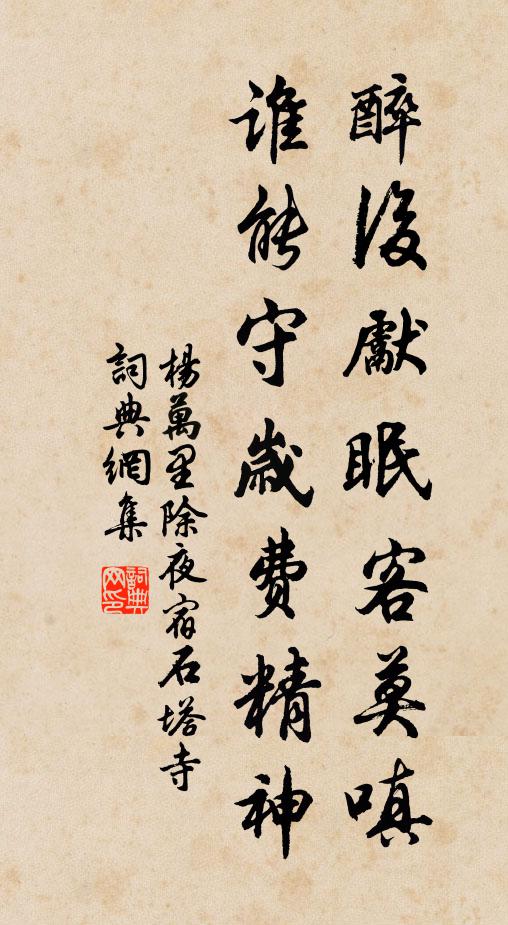 醉後獻眠客莫嗔
誰能守歲費精神
楊萬里除夜宿石塔寺
詞典網集
詞典網印